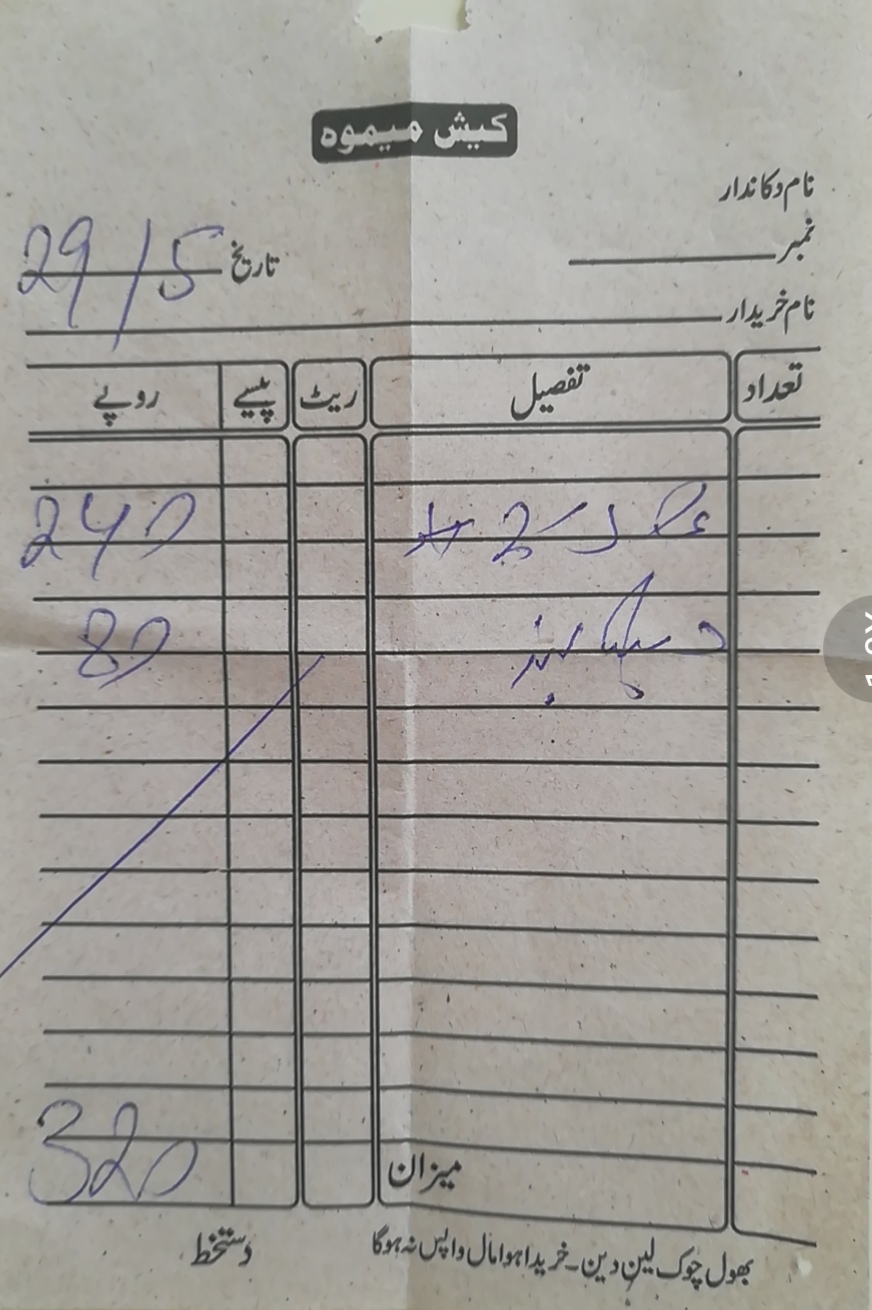 کیش میمو
نام دکاندار
نمبر
تاریخ 29/5
نام خریدار
تعداد تفصیل ریٹ پیسے روپے
240
80
میزان 320
بھول چوک لین دین۔ خریدا ہوا مال واپس نہ ہوگا
دستخط